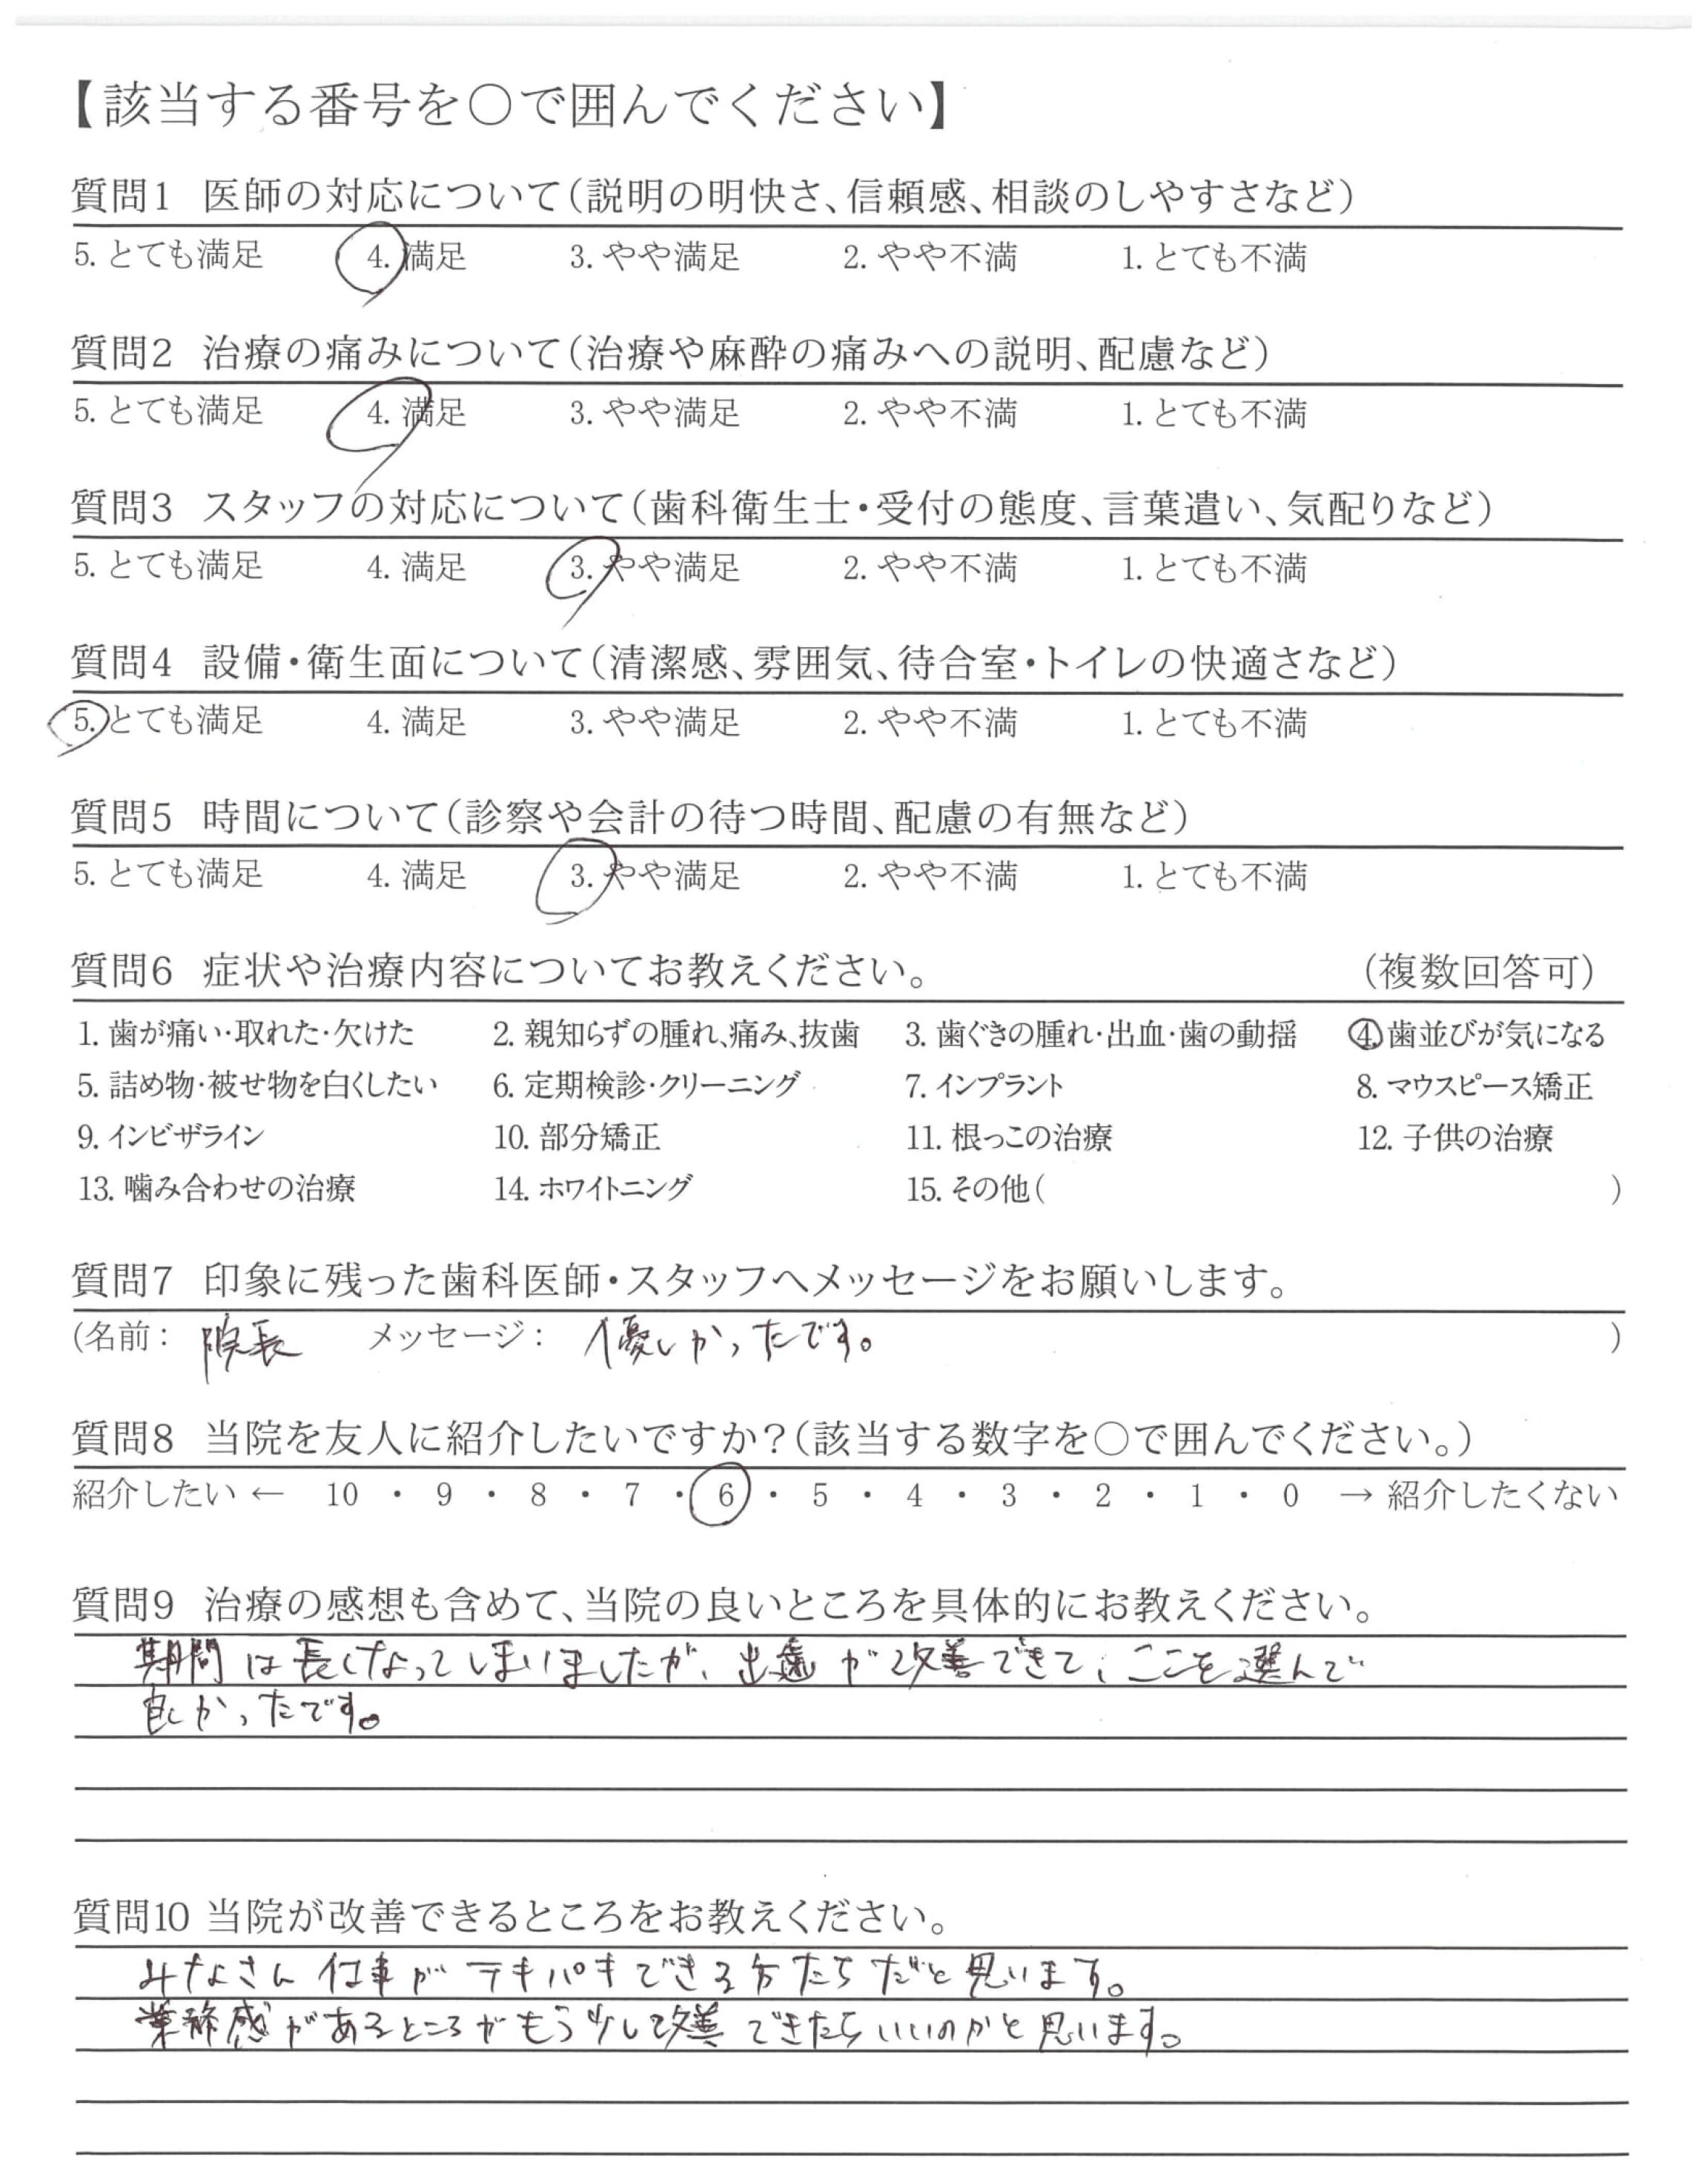 【該当する番号を○で囲んでください】
質問1 医師の対応について(説明の明快さ、信頼感、相談のしやすさなど)
5. とても満足 4. 満足 3. やや満足 2. やや不満 1. とても不満
質問2 治療の痛みについて(治療や麻酔の痛みへの説明、配慮など)
5. とても満足 4. 満足 3. やや満足 2. やや不満 1. とても不満
質問3 スタッフの対応について(歯科衛生士・受付の態度、言葉遣い、気配りなど)
5. とても満足 4. 満足 3. やや満足 2. やや不満 1. とても不満
質問4 設備・衛生面について(清潔感、雰囲気、待合室・トイレの快適さなど)
5. とても満足 4. 満足 3. やや満足 2. やや不満 1. とても不満
質問5 時間について(診察や会計の待つ時間、配慮の有無など)
5. とても満足 4. 満足 3. やや満足 2. やや不満 1. とても不満
質問6 症状や治療内容についてお教えください。 (複数回答可)
1. 歯が痛い・取れた・欠けた 2. 親知らずの腫れ、痛み、抜歯 3. 歯ぐきの腫れ・出血・歯の動揺 4. 歯並びが気になる
5. 詰め物・被せ物を白くしたい 6. 定期検診・クリーニング 7. インプラント 8. マウスピース矯正
9. インビザライン 10. 部分矯正 11. 根っこの治療 12. 子供の治療
13. 噛み合わせの治療 14. ホワイトニング 15. その他( )
質問7 印象に残った歯科医師・スタッフへメッセージをお願いします。
(名前: 院長 メッセージ: 優しかったです。 )
質問8 当院を友人に紹介したいですか?(該当する数字を○で囲んでください。)
紹介したい ← 10 ・ 9 ・ 8 ・ 7 ・ 6 ・ 5 ・ 4 ・ 3 ・ 2 ・ 1 ・ 0 → 紹介したくない
質問9 治療の感想も含めて、当院の良いところを具体的にお教えください。
期間は長くなってしまいましたが、出歯が改善できて、ここを選んで
良かったです。
質問10 当院が改善できるところをお教えください。
みなさん仕事がテキパキできる方たちだと思います。
業務感があるところがもう少し改善できたらいいのかと思います。